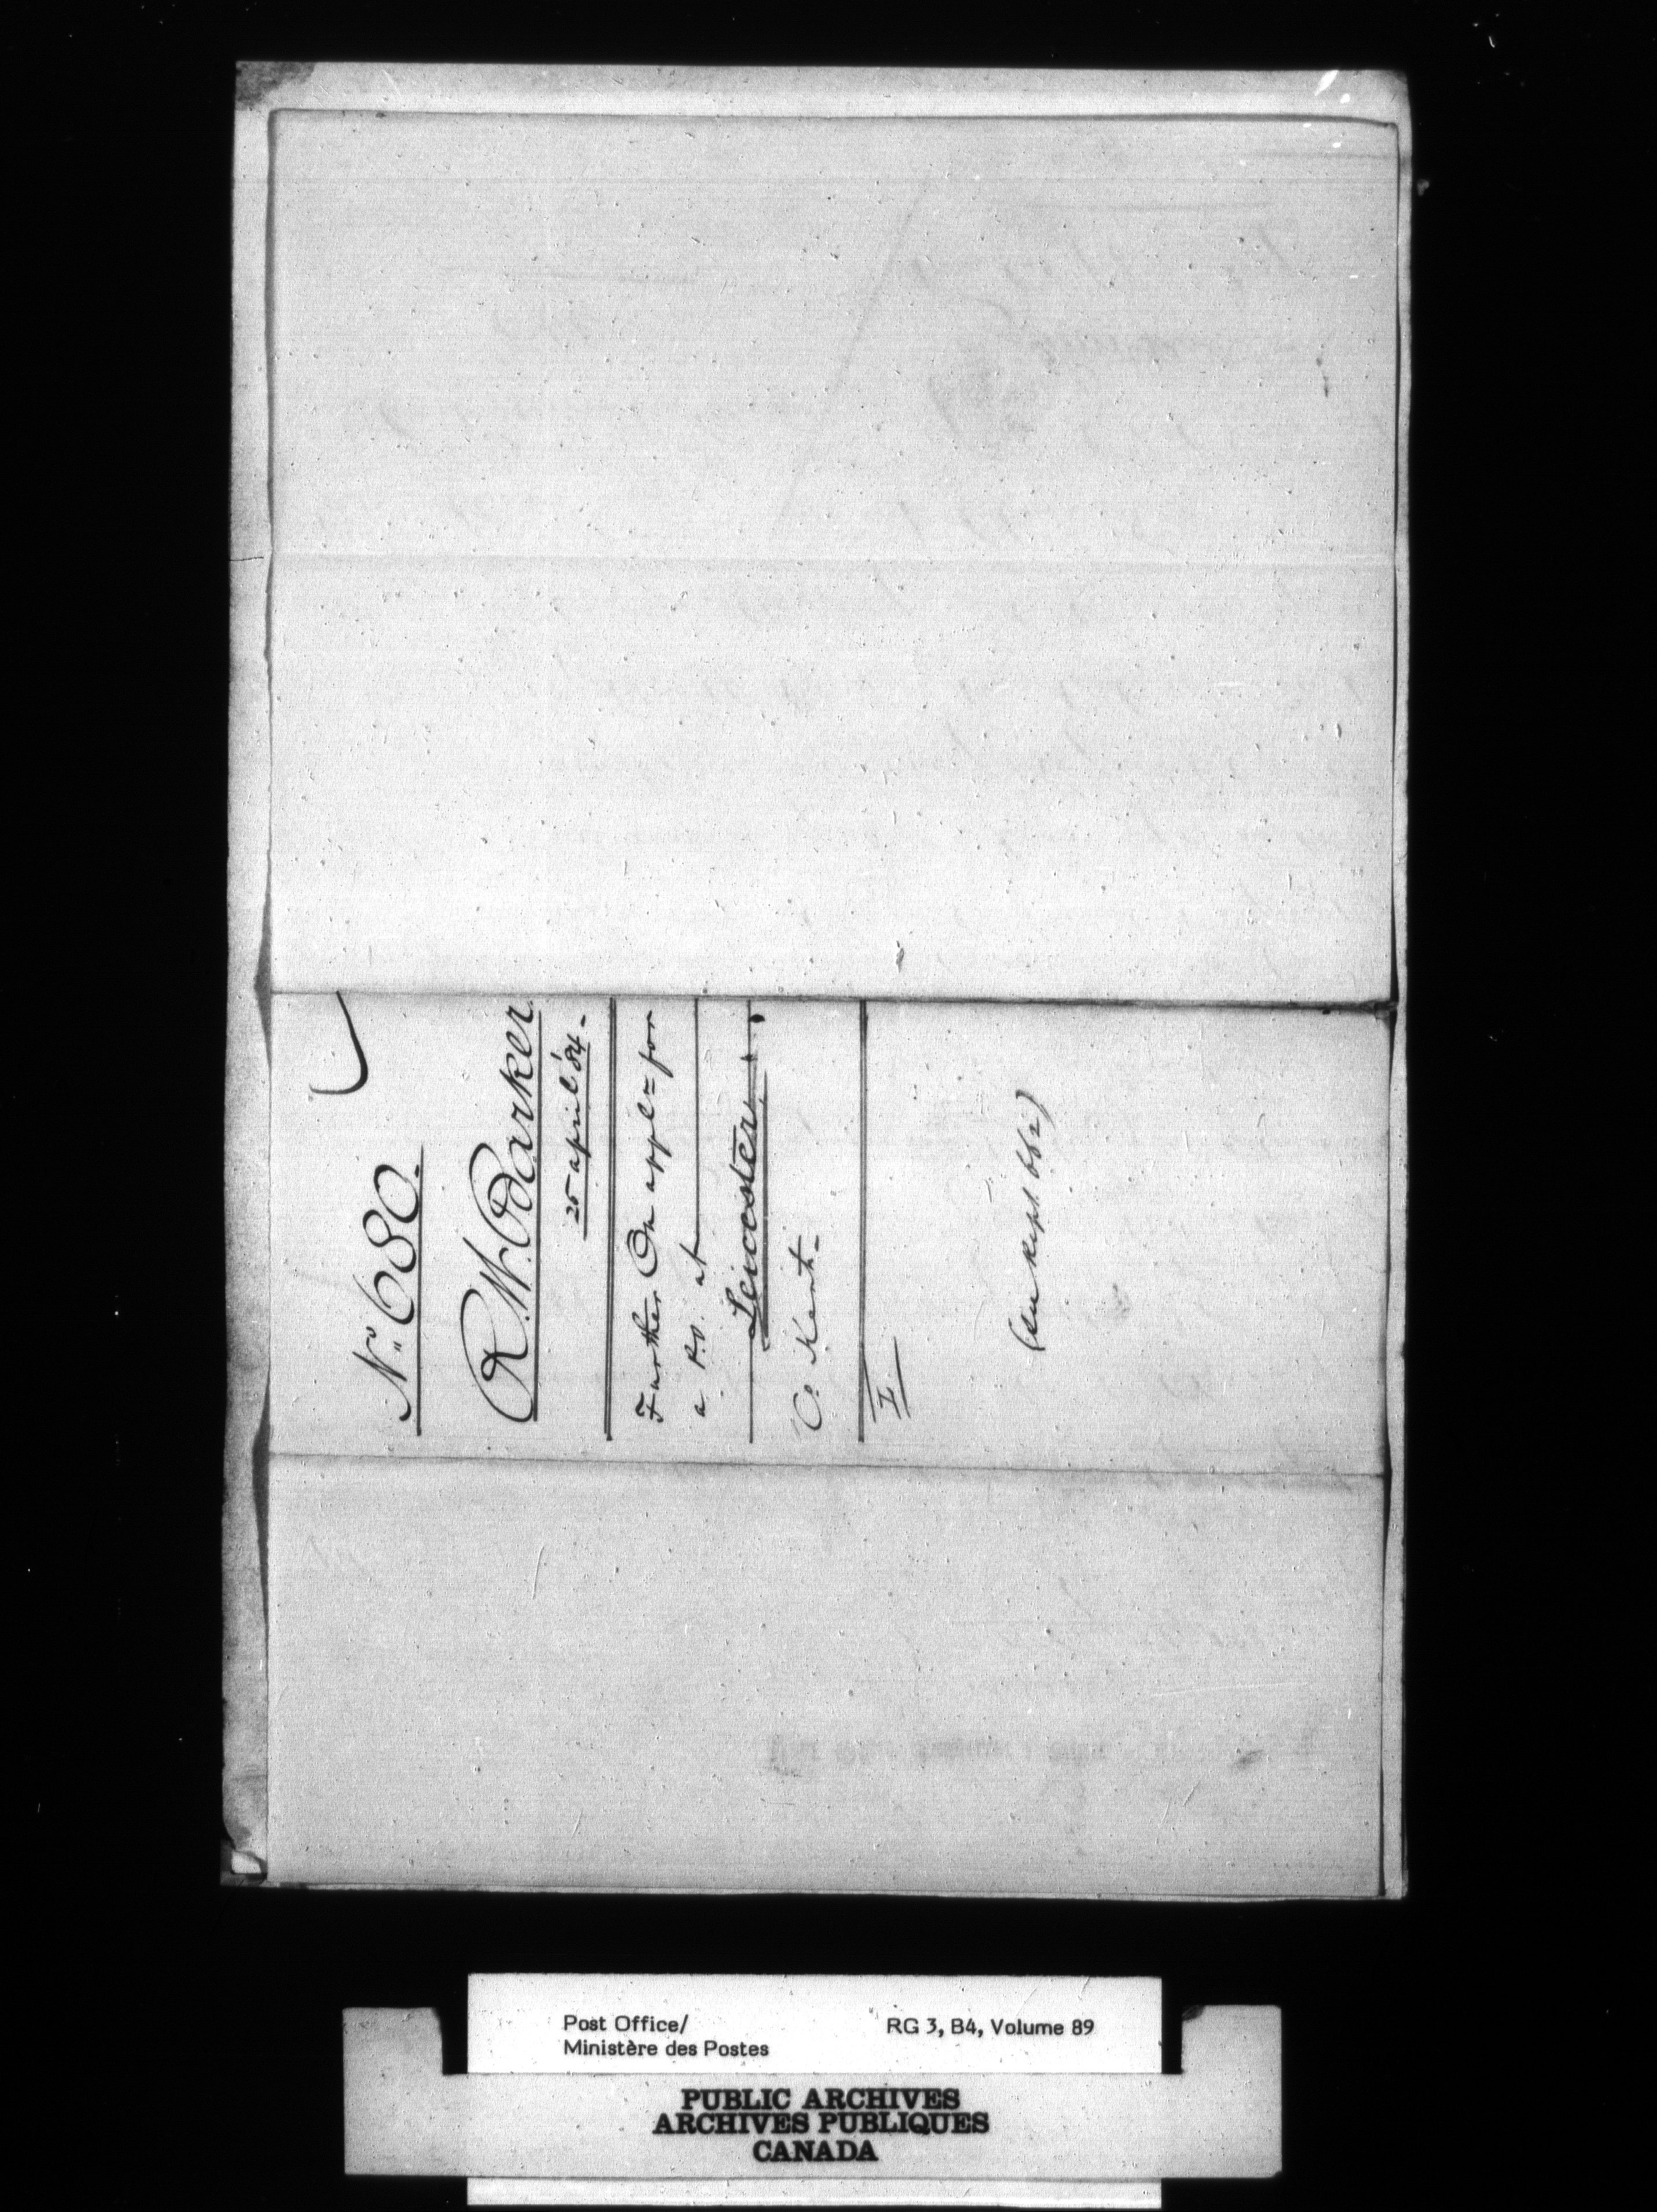 No. 680.
R. W. Barker
25 April '84.
Further On appl= for
a P.O. at
Leicester
C. Kent.
(see Rept. 662)
Post Office/
Ministère des Postes
RG 3, B4, Volume 89
PUBLIC ARCHIVES
ARCHIVES PUBLIQUES
CANADA